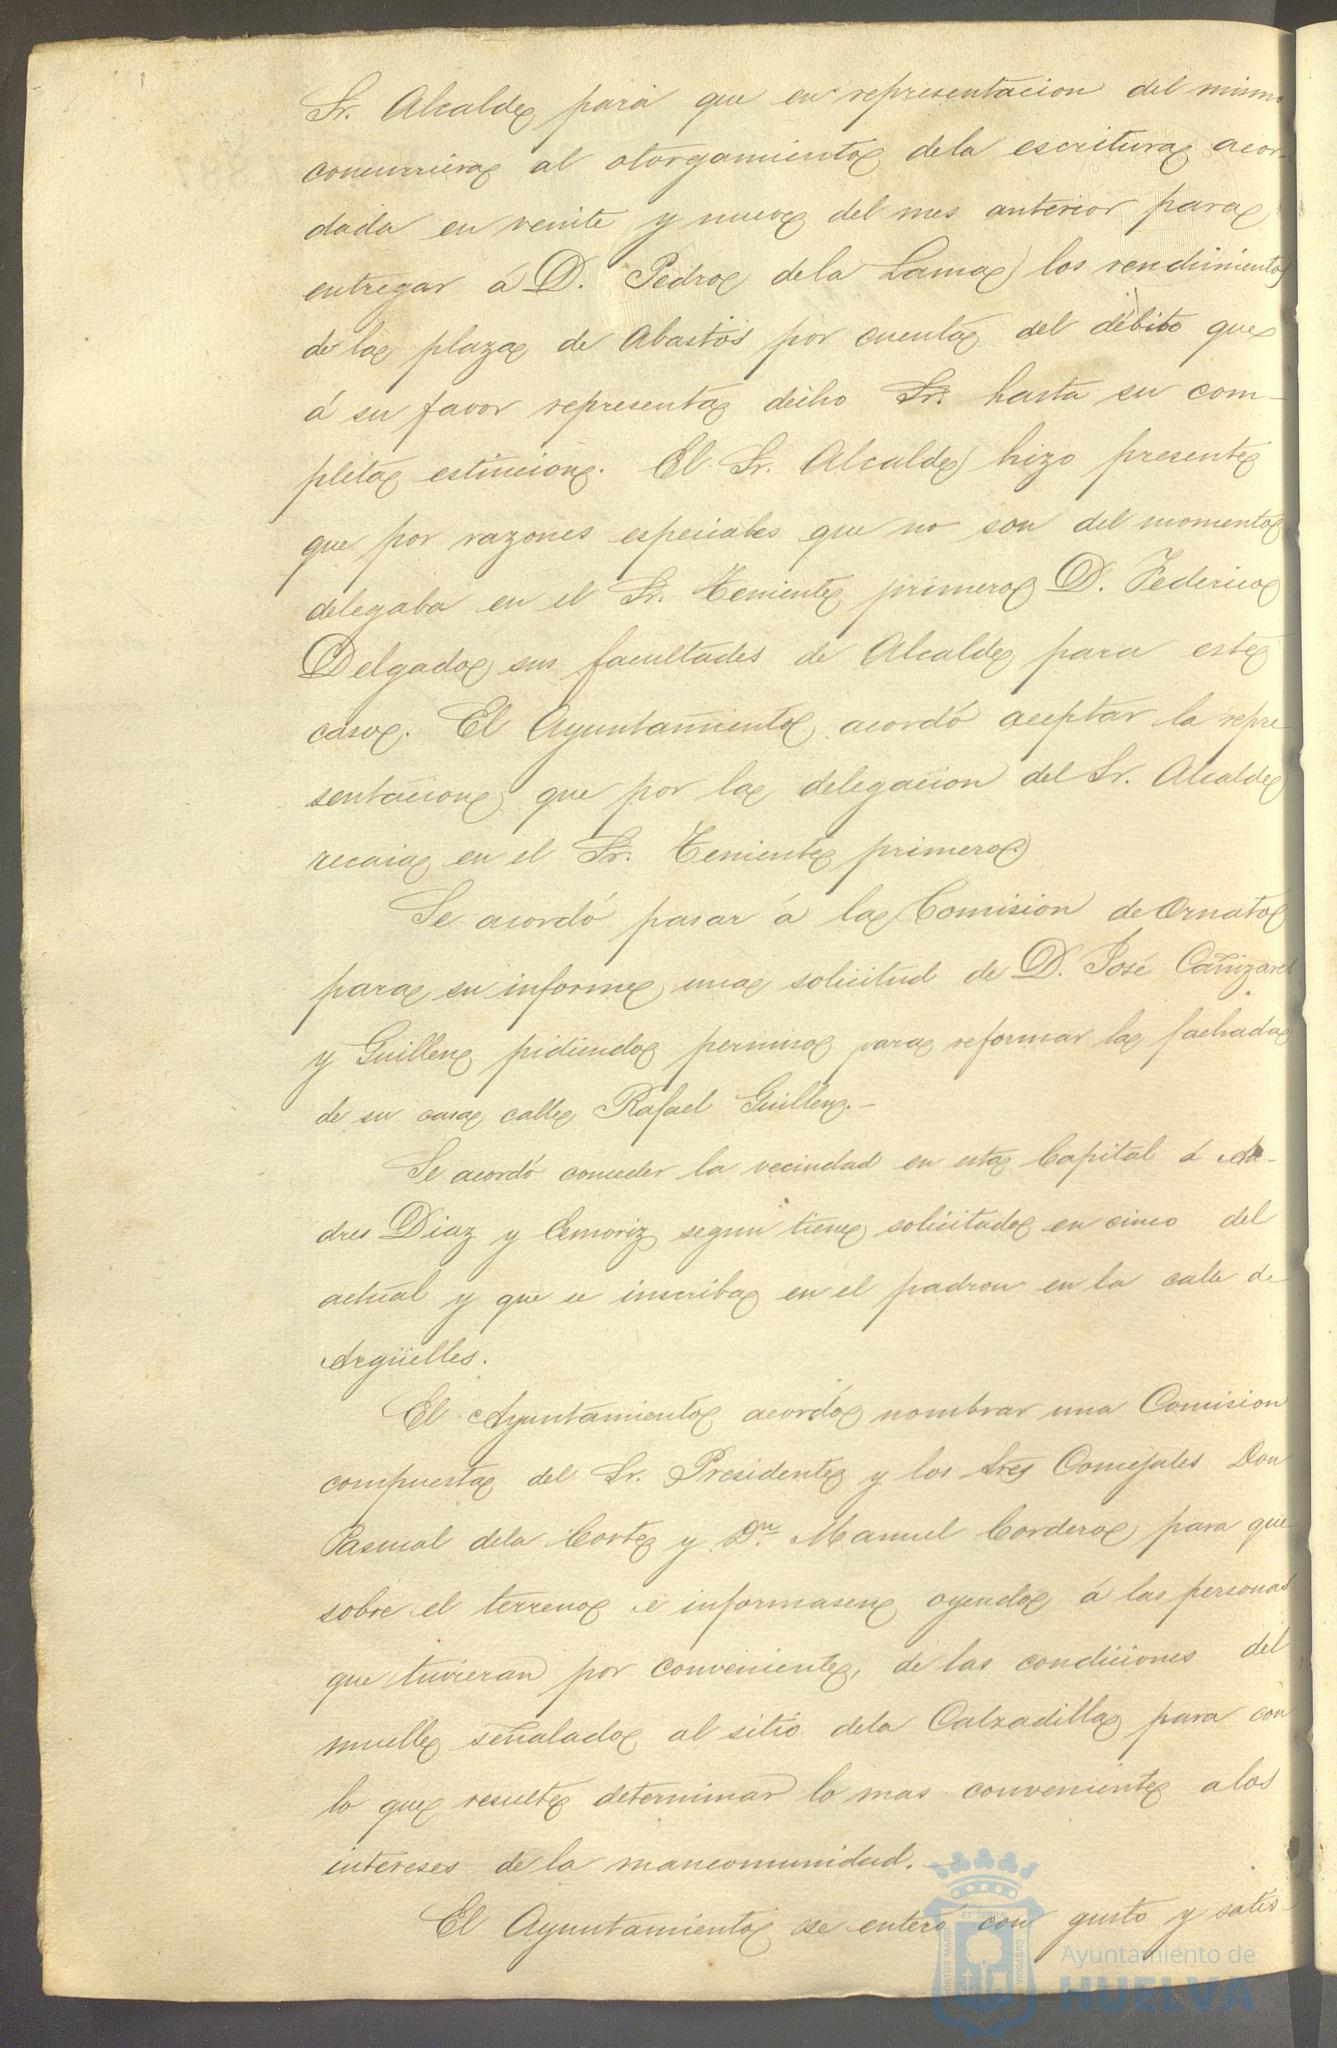 Sr. Alcalde para que en representacion del mismo
concurriera al otorgamiento dela escritura acor-
dada en veinte y nueve del mes anterior para
entregar á D. Pedro dela Lama los rendimientos
de la plaza de Abastos por cuenta del débito que
á su favor representa dicho Sr. hasta su com-
pleta estincion. El Sr. Alcalde hizo presente
que por razones especiales que no son del momento
delegaba en el Sr. Teniente primero D. Federico
Delgado sus facultades de Alcalde para este
caso. El Ayuntamiento acordó aceptar la repre-
sentacion que por la delegacion del Sr. Alcalde
recaia en el Sr. Teniente primero.
Se acordó pasar á la Comision de Ornato
para su informe una solicitud de D. José Cañizares
y Guillen pidiendo permiso para reformar la fachada
de su casa calle Rafael Guillen.-
Se acordó conceder la vecindad en esta Capital á An-
dres Diaz y segun tiene solicitado en cinco del
actual y que se inscriba en el padron en la calle de
Argüelles.
El Ayuntamiento acordó nombrar una Comision
compuesta del Sr. Presidente y los Sres Concejales Don
Pascual dela Corte y Dn. Manuel Cordero para que
sobre el terreno se informasen oyendo á las personas
que tuvieran por conveniente, de las condiciones del
muelle señalado al sitio dela Calzadilla para con
lo que resulte determinar lo mas conveniente alos
intereses de la mancomunidad.-
El Ayuntamiento se enteró con gusto y satis-
Ayuntamiento de
HUELVA